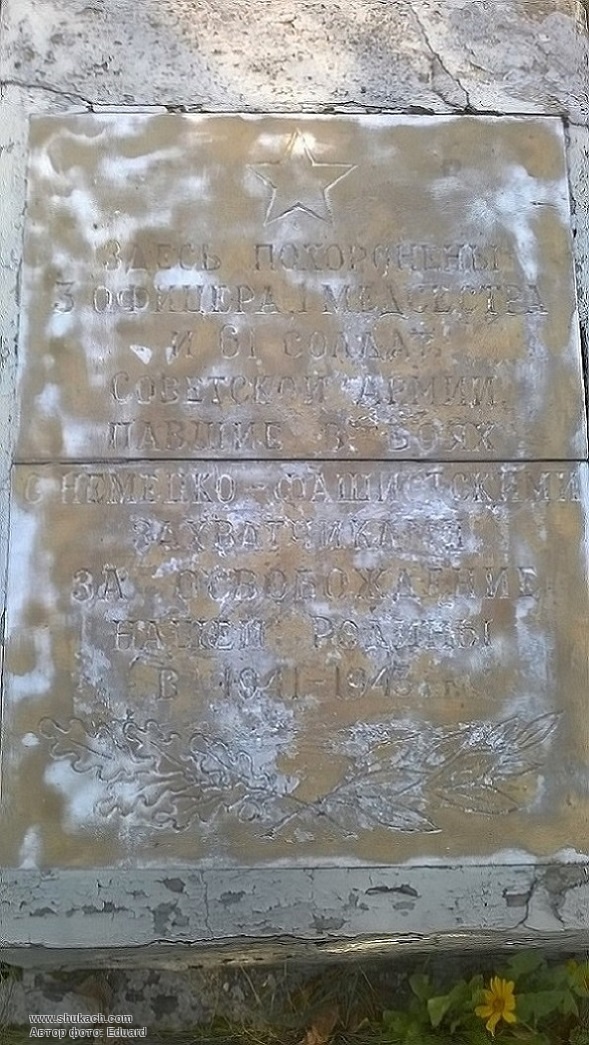 ЗДЕСЬ ПОХОРОНЕНЫ
3 ОФИЦЕРА, 1 МЕДСЕСТРА
И 61 СОЛДАТ
СОВЕТСКОЙ АРМИИ,
ПАВШИЕ В БОЯХ
С НЕМЕЦКО-ФАШИСТСКИМИ
ЗАХВАТЧИКАМИ
ЗА ОСВОБОЖДЕНИЕ
НАШЕЙ РОДИНЫ
В 1941-1943 гг.
www.shukach.com
Автор фото: Eduard